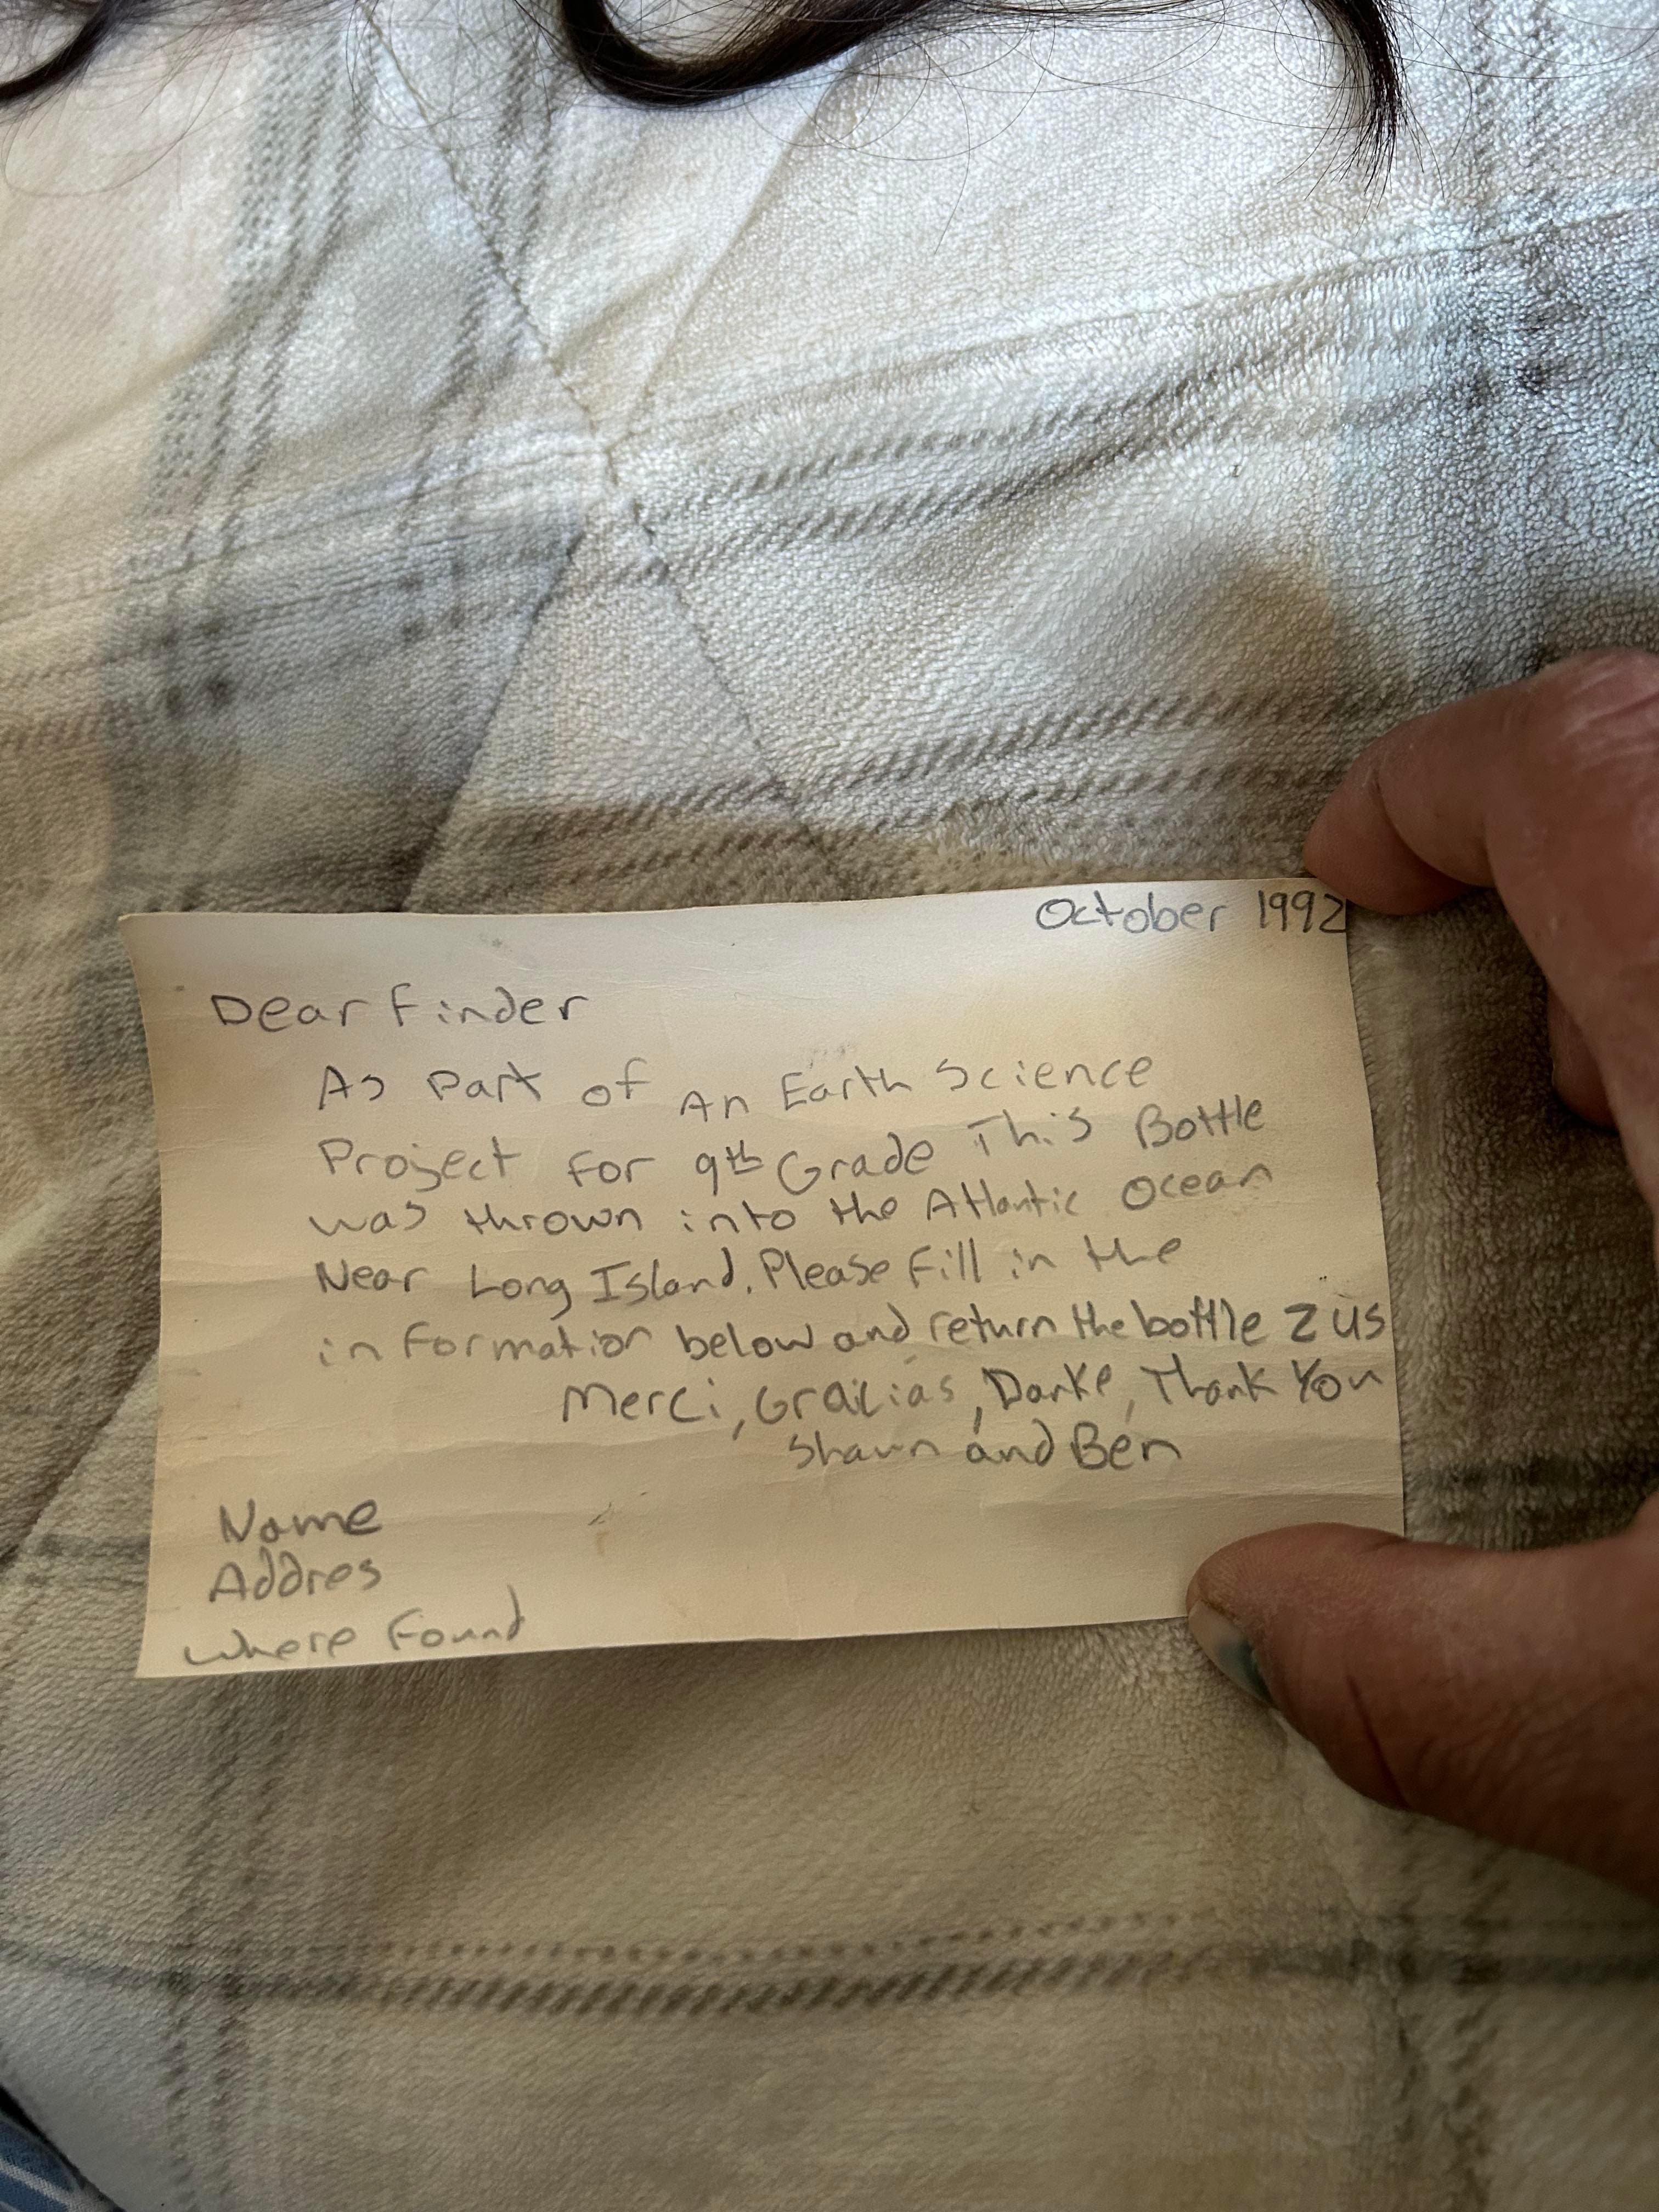 October 1992
Dear Finder
As Part of An Earth Science
Project for 9th Grade This Bottle
was thrown into the Atlantic Ocean
Near Long Island. Please fill in the
information below and return the bottle 2 us
Merci, Grailias, Danke, Thank You
Shawn and Ben
Name
Addres
Where Found